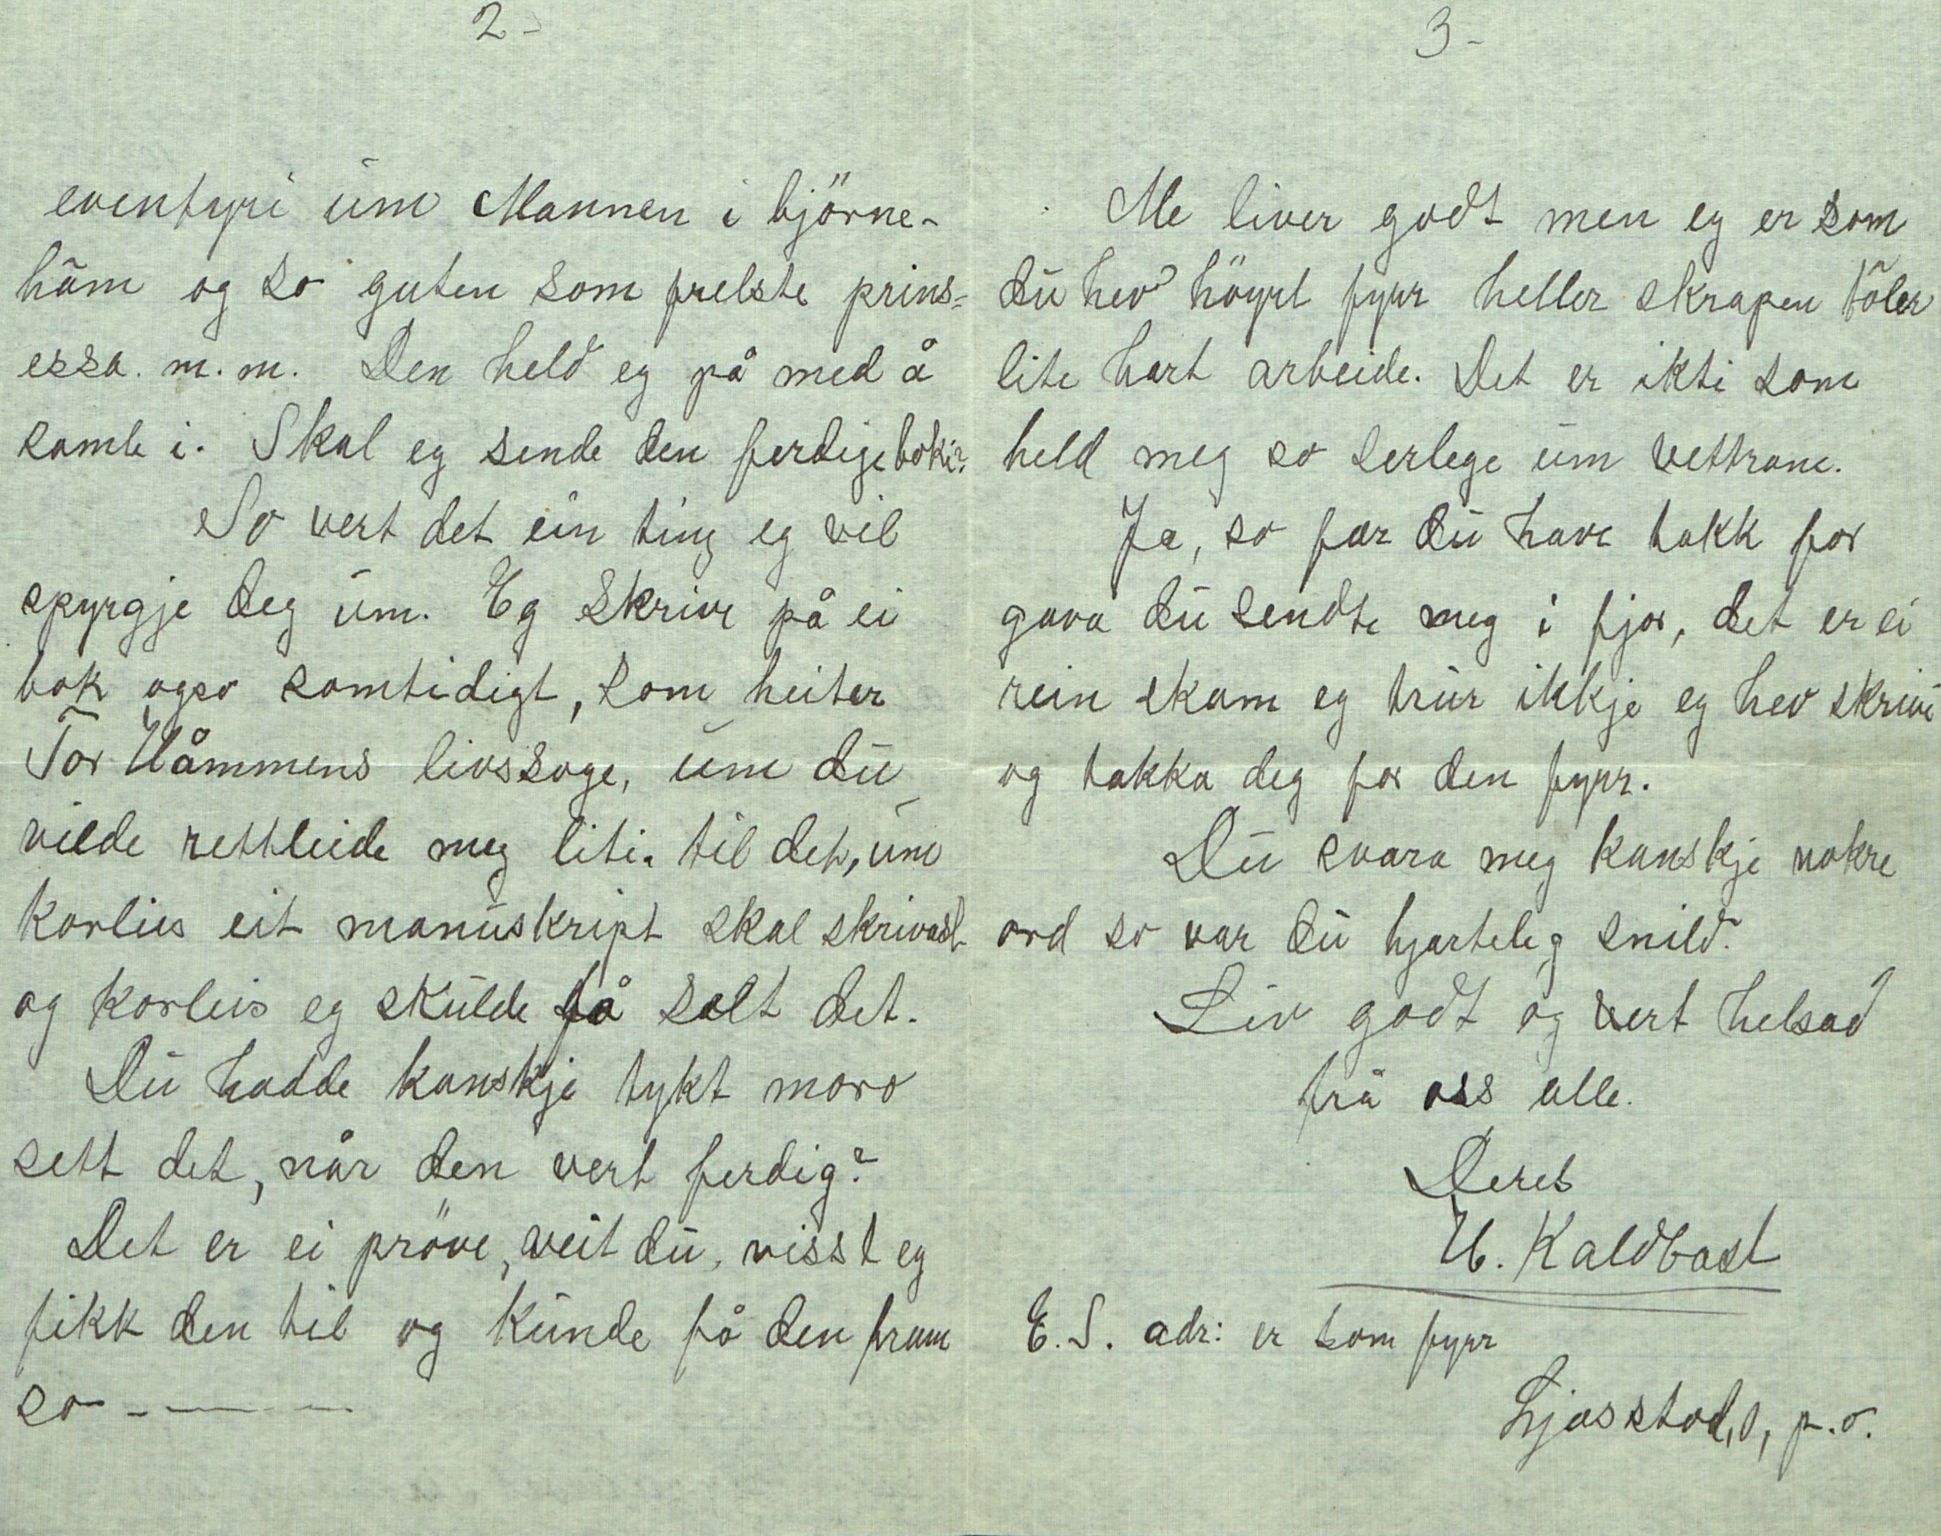 2-
eventyri um Mannen i björne-
hām og so guten som frelste prins=
essa. m. m. Den held eg på med å
samle i. Skal eg sende den ferdige boki?
So vert det ein ting eg vil
spyrgje deg um. Eg skrive på ei
bok ogso samtidigt, som heiter
Tor Uåmmens livssoge, um du
vilde rettleide meg liti. til det, um
korlies eit manuskript skal skrivast
og korleis eg skulde få selt det.
Du hadde kanskje tykt moro
sett det, når den vert ferdig?
Det er ei pröve, veit du, visst eg
fikk den til og kunde få den fram
so - — -
3-
Me liver godt men eg er som
du hev höyrt fyrr heller skrapen töler
lite hart arbeide. Det er ikti som
held meg so serlege um vettrane.
Ja, so fær du have takk for
gava du sendte meg i fjor, det er ei
rein skam eg trur ikkje eg hev skrive
og takka deg for den fyrr.
Du svara meg kanskje nokre
ord so var du hjarteleg snild.
Liv godt og vert helsad
frå oss alle.
Deres
H. Kaldbast
E. S. adr: er som fyrr
p.o.